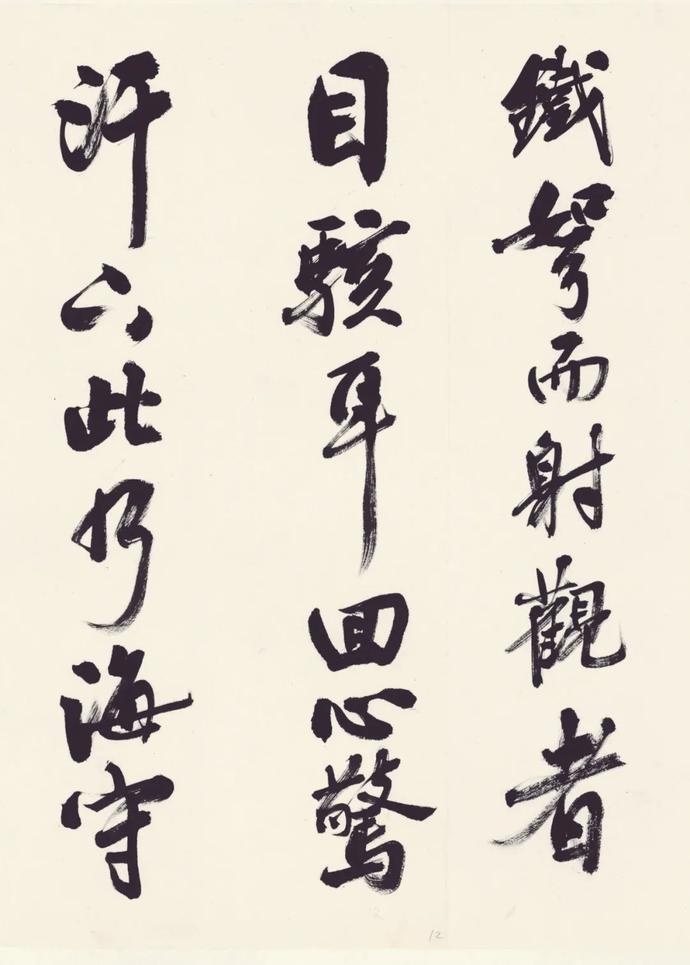 鐵弩而射觀者
目駭耳回心驚
汗下此乃海守
12